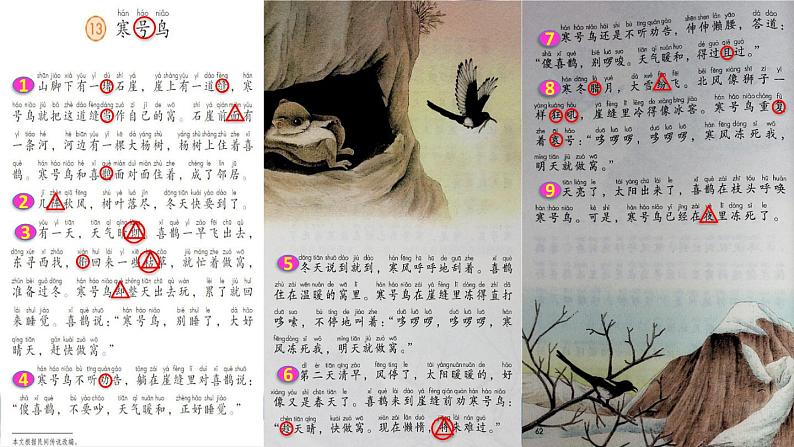 13 寒号鸟
1 山脚下有一堵石崖，崖上有一道缝，寒
号鸟就把这道缝当作自己的窝。石崖前面有
一条河，河边有一棵大杨树，杨树上住着喜
鹊。寒号鸟和喜鹊面对面住着，成了邻居。
2 几阵秋风，树叶落尽，冬天快要到了。
3 有一天，天气晴朗。喜鹊一早飞出去，
东寻西找，衔回来一些枯草，就忙着做窝，
准备过冬。寒号鸟却整天出去玩，累了就回
来睡觉。喜鹊说：“寒号鸟，别睡了，大好
晴天，赶快做窝。”
4 寒号鸟不听劝告，躺在崖缝里对喜鹊说：
“傻喜鹊，不要吵，天气暖和，正好睡觉。”
本文根据民间传说改编。
5 冬天说到就到，寒风呼呼地刮着。喜鹊
住在温暖的窝里。寒号鸟在崖缝里冻得直打
哆嗦，不停地叫着：“哆啰啰，哆啰啰，寒
风冻死我，明天就做窝。”
6 第二天清早，风停了，太阳暖暖的，好
像又是春天了。喜鹊来到崖缝前劝寒号鸟：
“趁天晴，快做窝。现在懒惰，将来难过。”
7 寒号鸟还是不听劝告，伸伸懒腰，答道：
“傻喜鹊，别啰唆。天气暖和，得过且过。”
8 寒冬腊月，大雪纷飞。北风像狮子一
样狂吼，崖缝里冷得像冰窖。寒号鸟重复
着哀号：“哆啰啰，哆啰啰，寒风冻死我，
明天就做窝。”
9 天亮了，太阳出来了，喜鹊在枝头呼唤
寒号鸟。可是，寒号鸟已经在夜里冻死了。
62